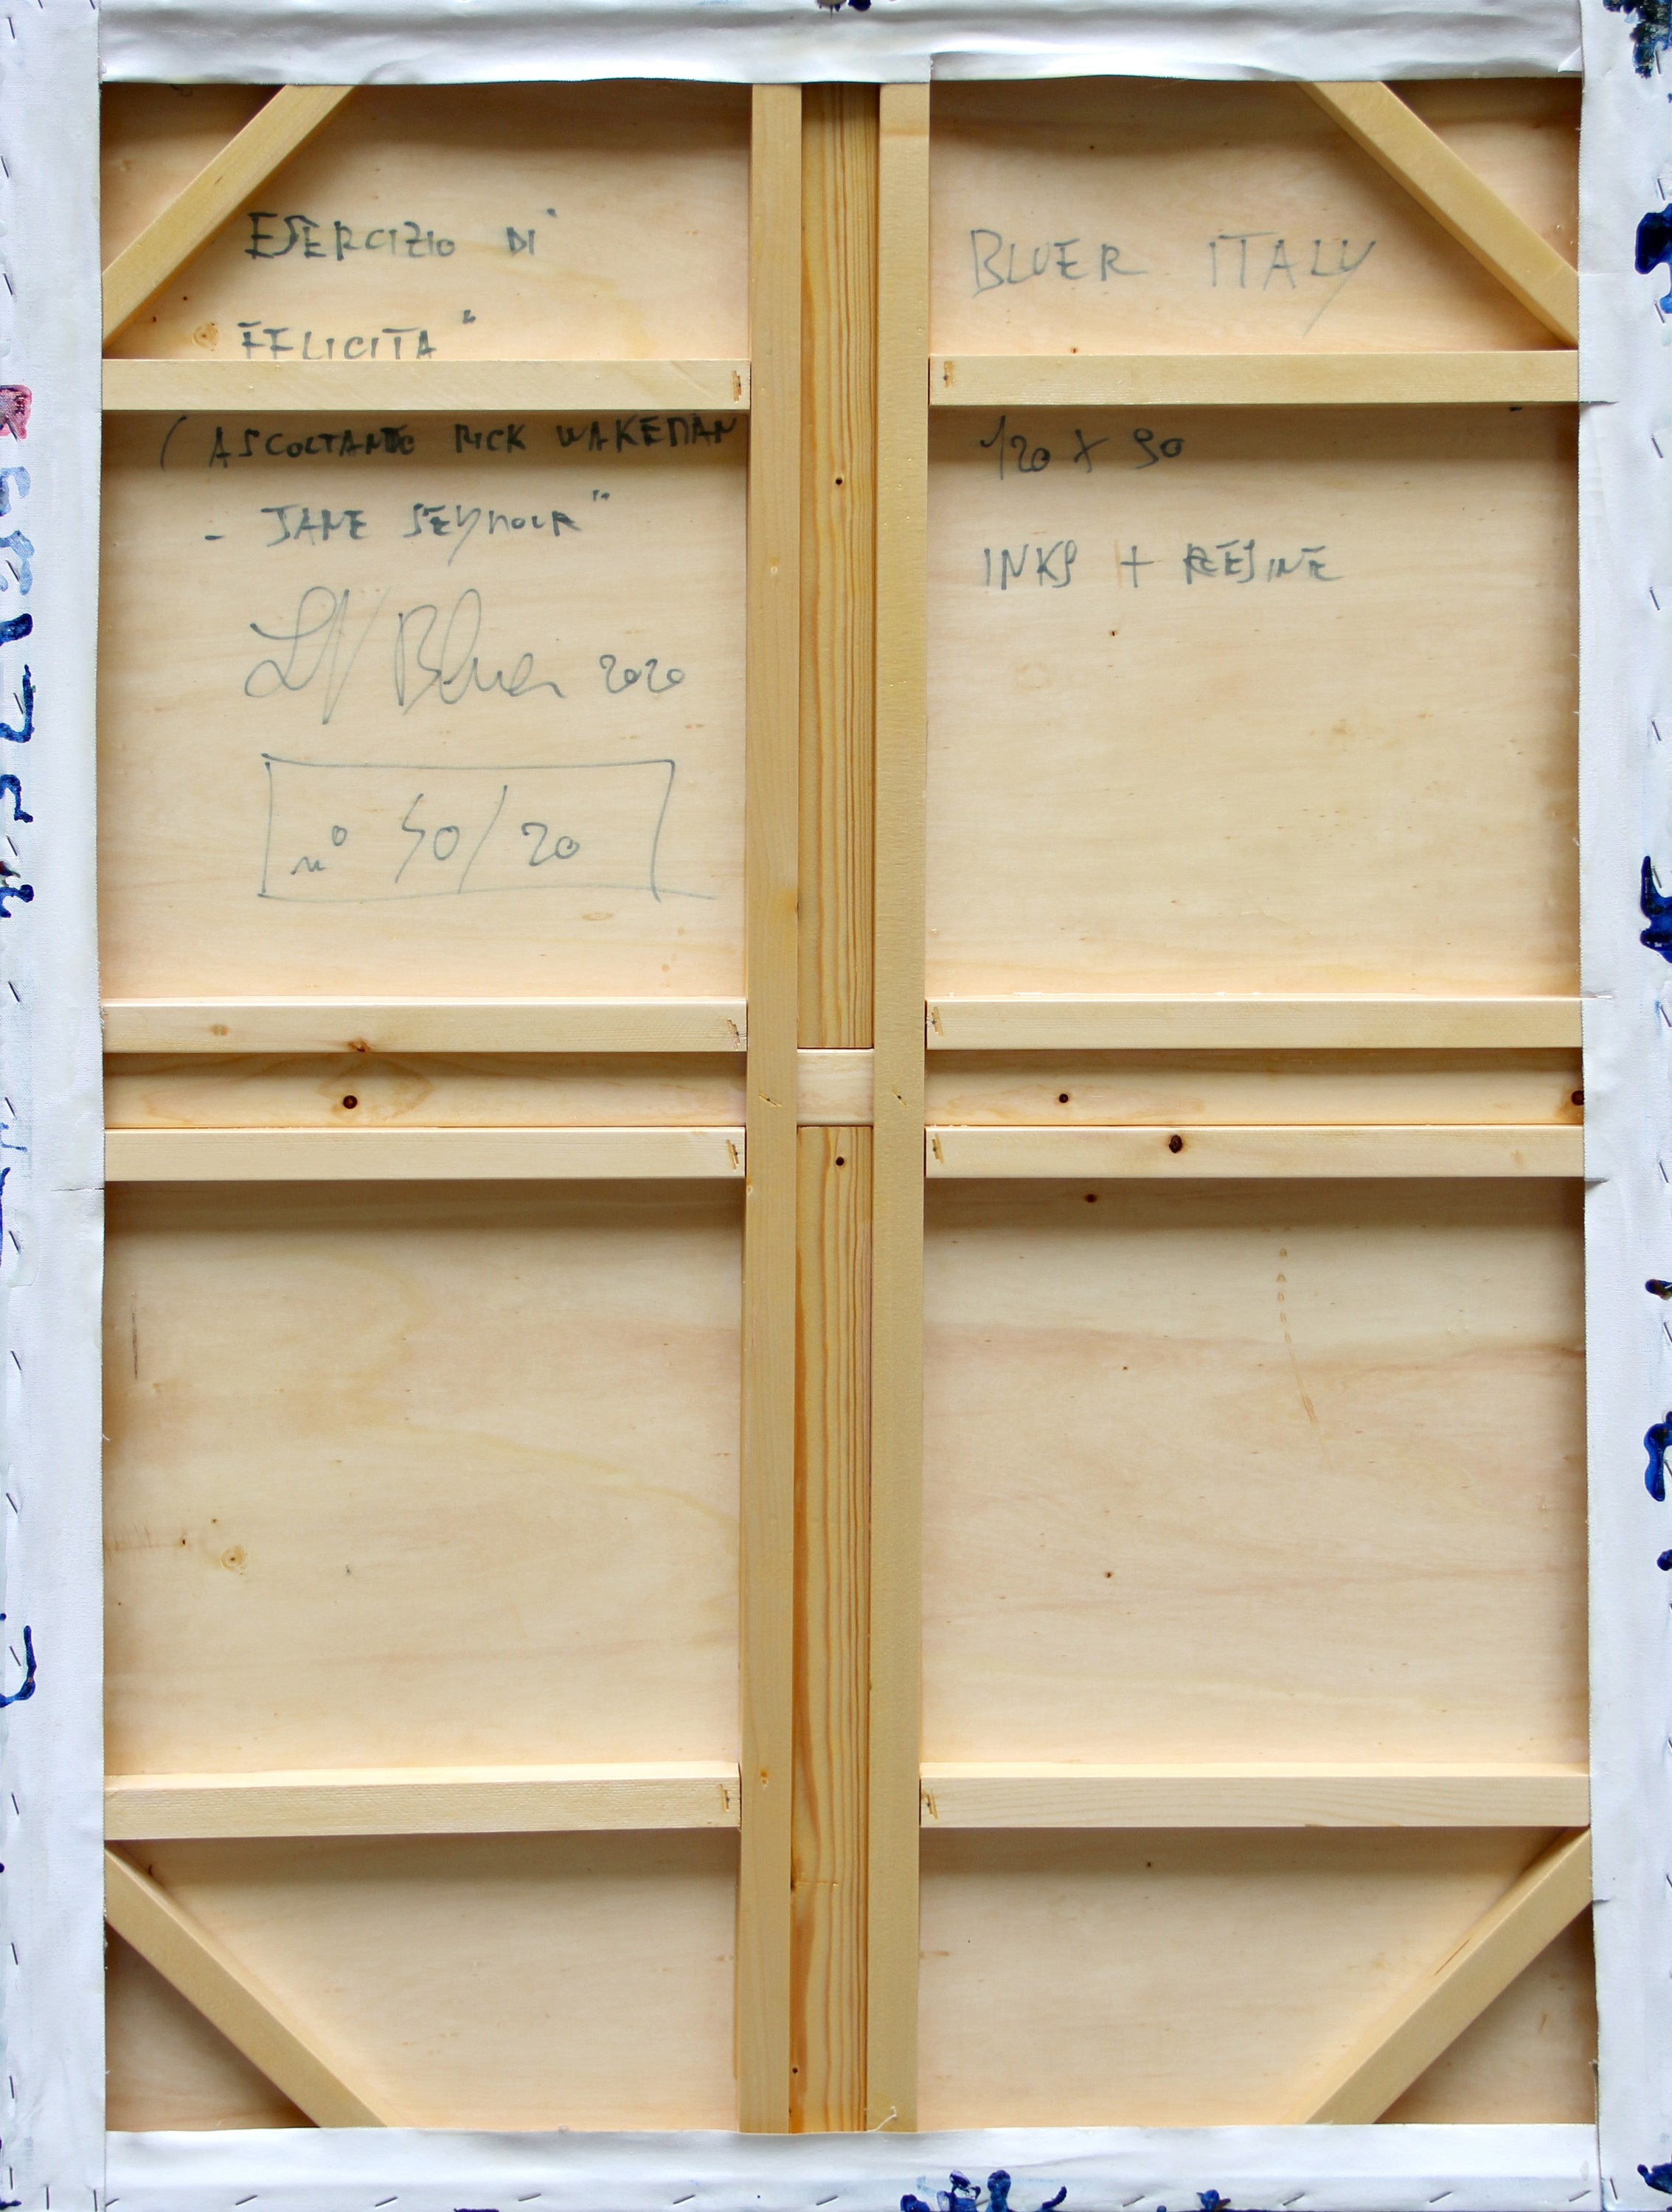 ESERCIZIO DI
FELICITA"
( ASCOLTANDO RICK WAKEMAN
- JANE SEYMOUR"
LN Bluer 2020
n° 50/20
BLUER ITALY
120 X 90
INKS + RESINE